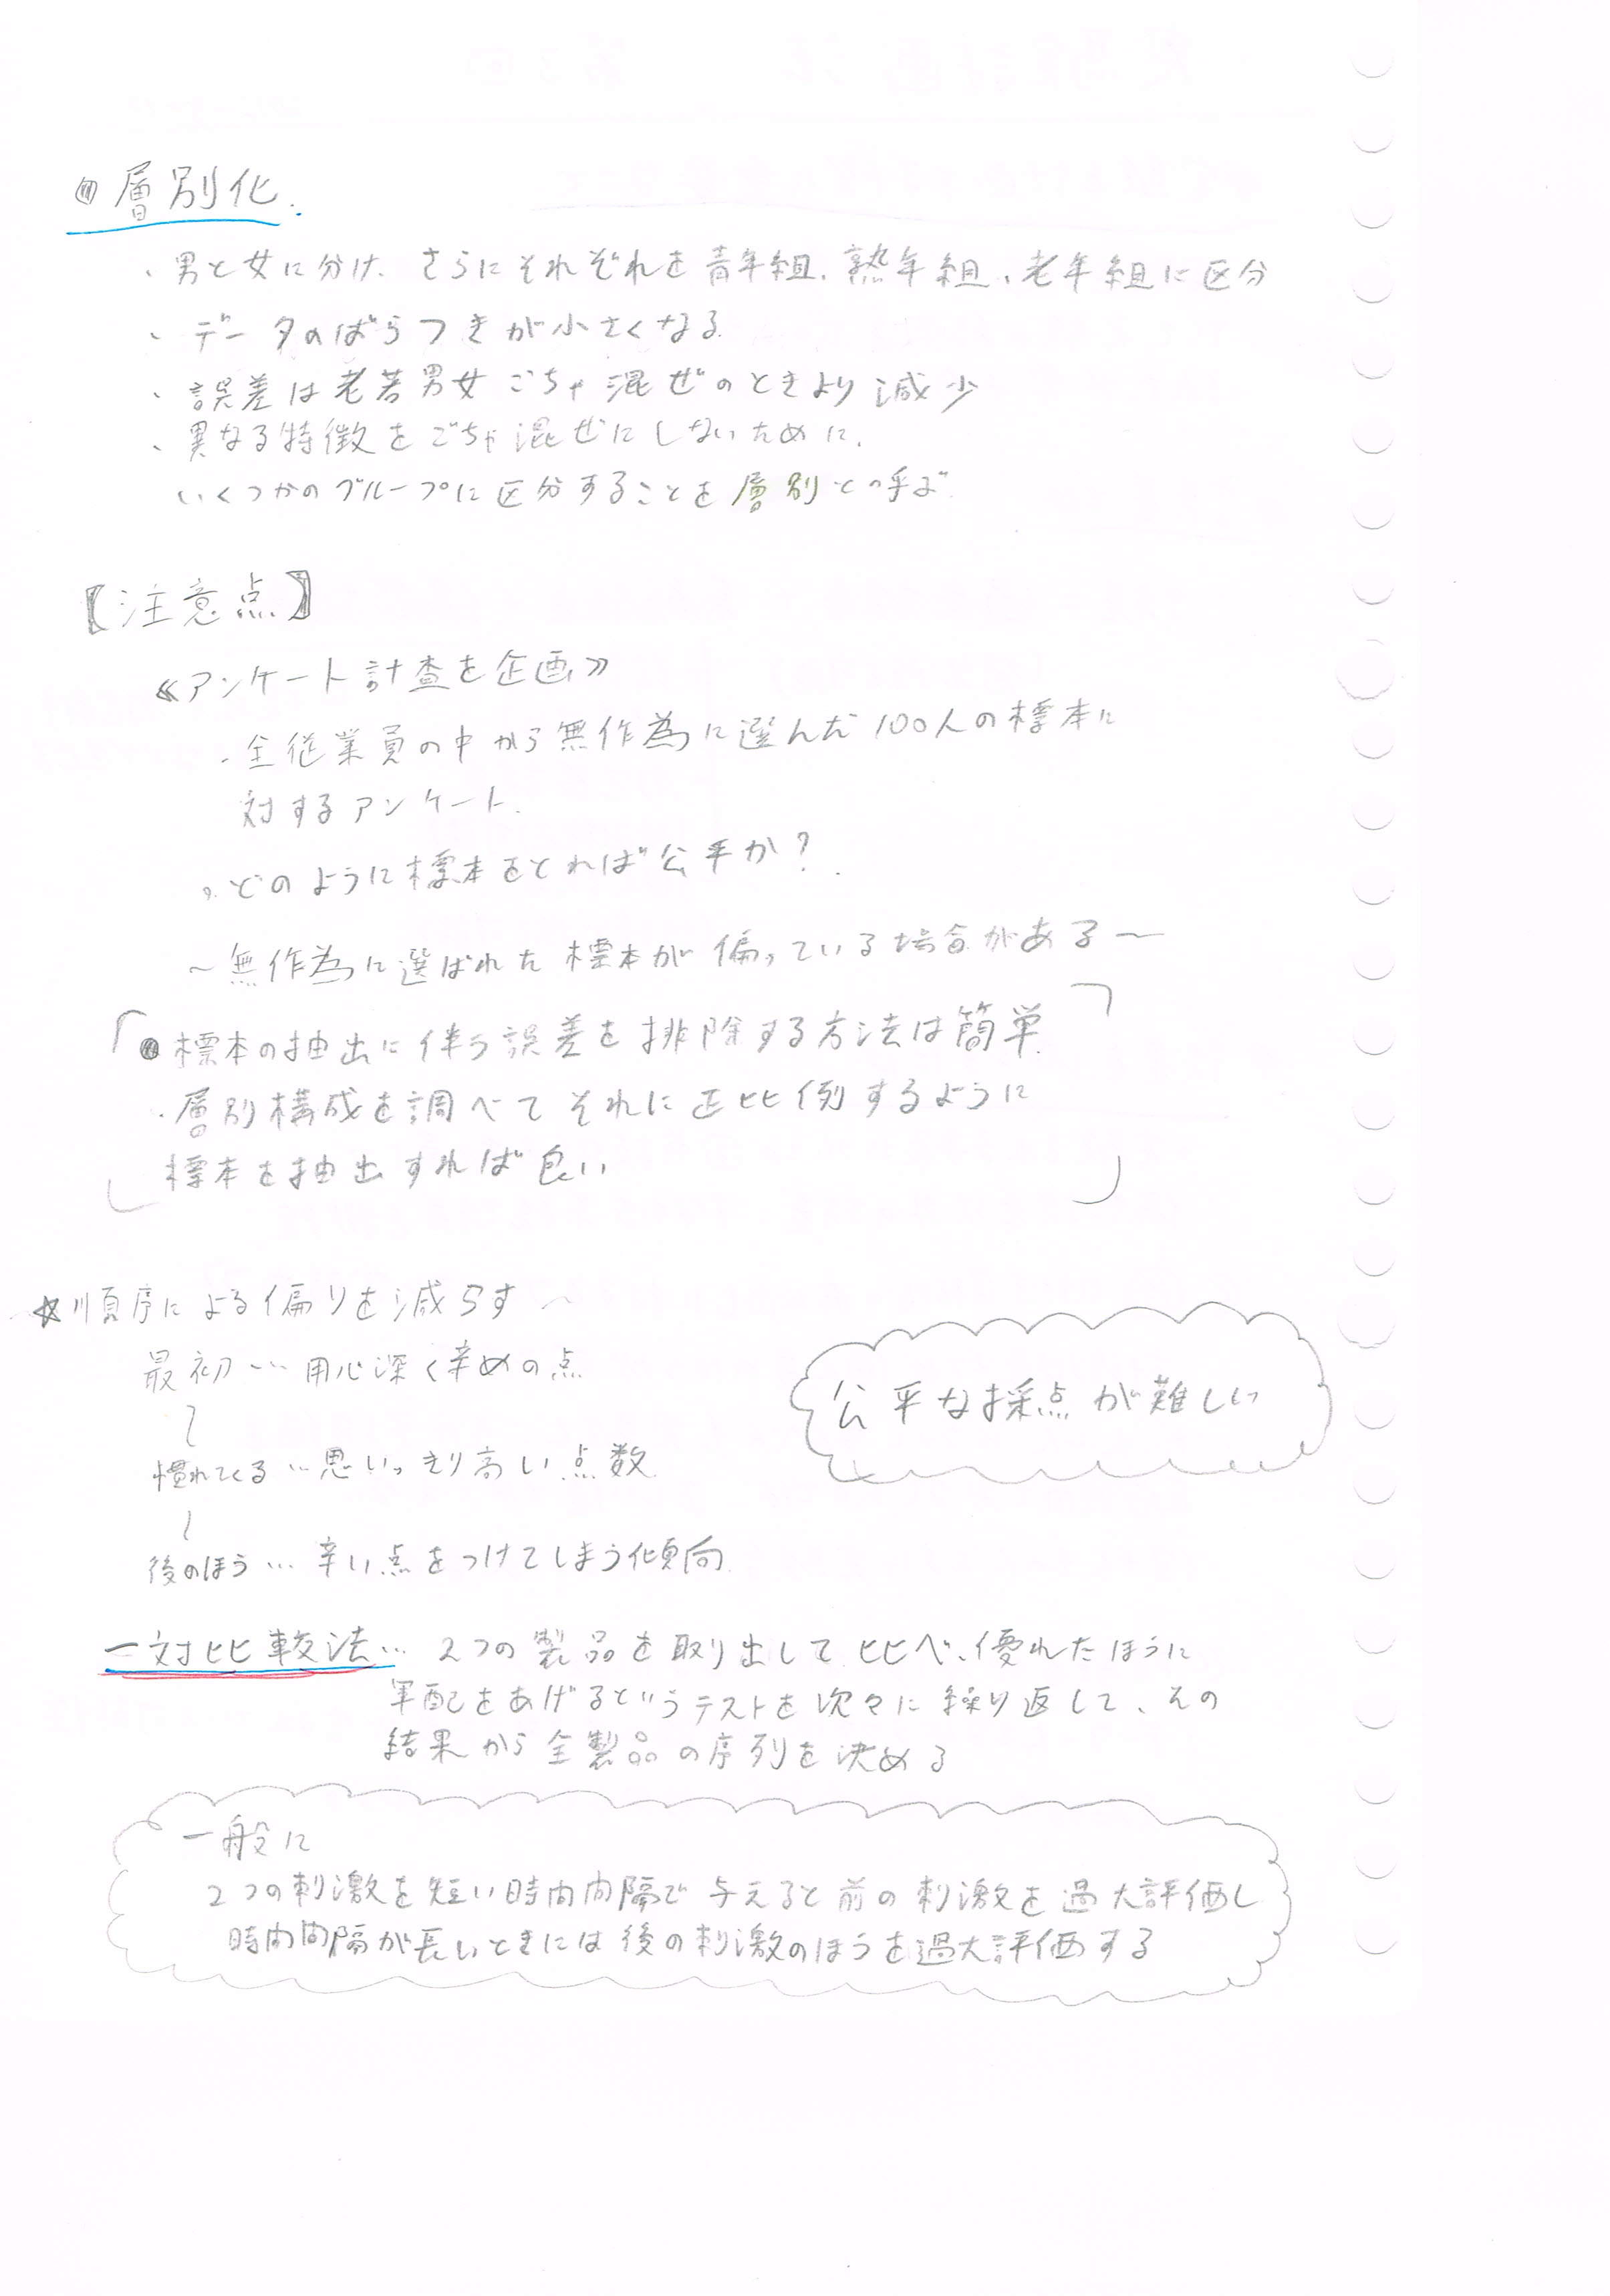 ◎層別化.
・男と女に分け、さらにそれぞれを青年組、熟年組、老年組に区分
・データのばらつきが小さくなる
・誤差は老若男女ごちゃ混ぜのときより減少
・異なる特徴をごちゃ混ぜにしないために、
いくつかのグループに区分することを層別と呼ぶ
【注意点】
≪アンケート計査を企画≫
・全従業員の中から無作為に選んだ100人の標本に
対するアンケート.
・どのように標本をとれば公平か?
〜無作為に選ばれた標本が偏っている場合がある〜
●標本の抽出に伴う誤差を排除する方法は簡単
・層別構成を調べてそれに正比例するように
標本を抽出すれば良い
☆順序による偏りを減らす〜
最初…用心深く辛めの点
〜
慣れてくる…思いっきり高い点数
〜
後のほう…辛い点をつけてしまう傾向
公平な採点が難しい
一対比較法…2つの製品を取り出して比べ、優れたほうに
軍配をあげるというテストを次々に繰り返して、その
結果から全製品の序列を決める
一般に
2つの刺激を短い時間間隔で与えると前の刺激を過大評価し
時間間隔が長いときには後の刺激のほうを過大評価する